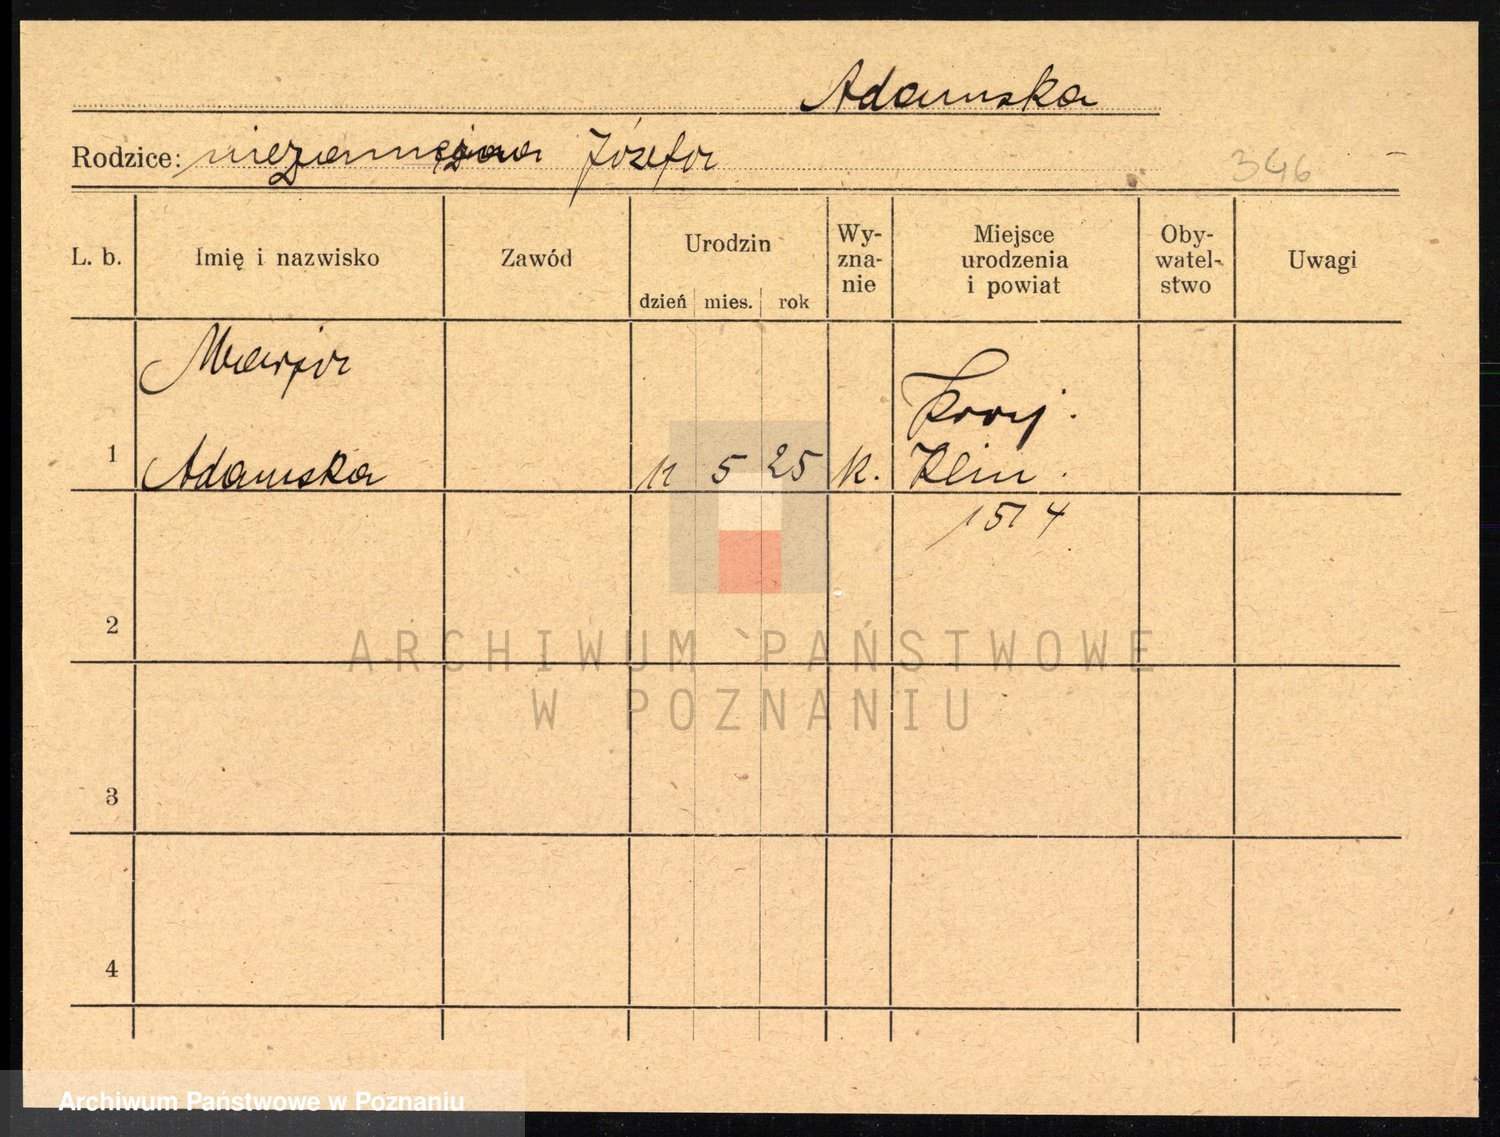 Adamska
Rodzice: niezamężna Józefa
346
L. b. Imię i nazwisko Zawód Urodzin dzień mies. rok Wy-zna-nie Miejsce urodzenia i powiat Oby-watel-stwo Uwagi
Marja
1 Adamska 11 5 25 k.
1514
2
3
4
ARCHIWUM PAŃSTWOWE
W POZNANIU
Archiwum Państwowe w Poznaniu